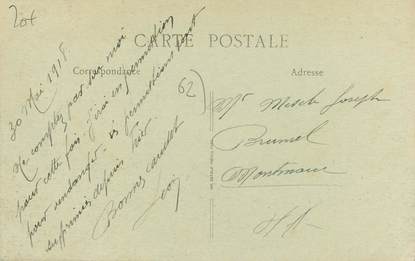 20f
CARTE POSTALE
Correspondance
Adresse
62
30 Mai 1918
Ne comptez pas sur moi
pour cette fois j'irai en permission
pour vendanger. les permissions sont
supprimées depuis hier
Bonne
Léon
Mr Misch Joseph
Brunel